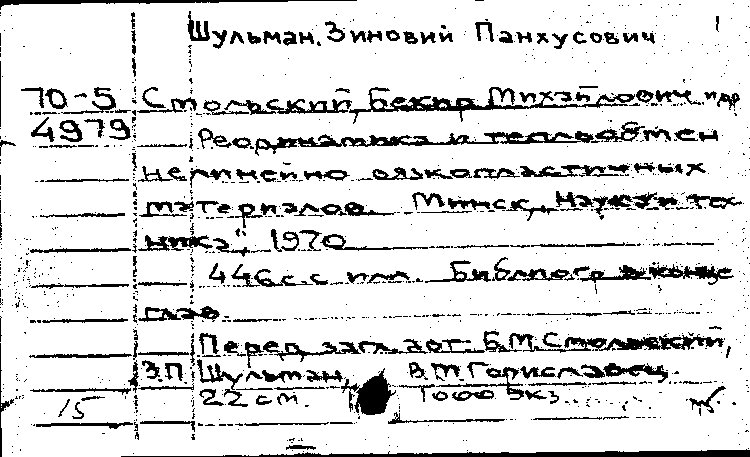 Шульман, Зиновий Панхусович
70-5 Смольский, Бекир Михайлович и др
4979 Реодинамика и теплообмен
нелинейно вязкопластичных
материалов. Минск, „Наука и тех
ника", 1970
446 с. с илл. Библиогр в конце
глав.
Перед загл. авт: Б.М. Смольский,
З.П. Шульман, В.М. Гориславец.
15 22 см. 1000 экз.